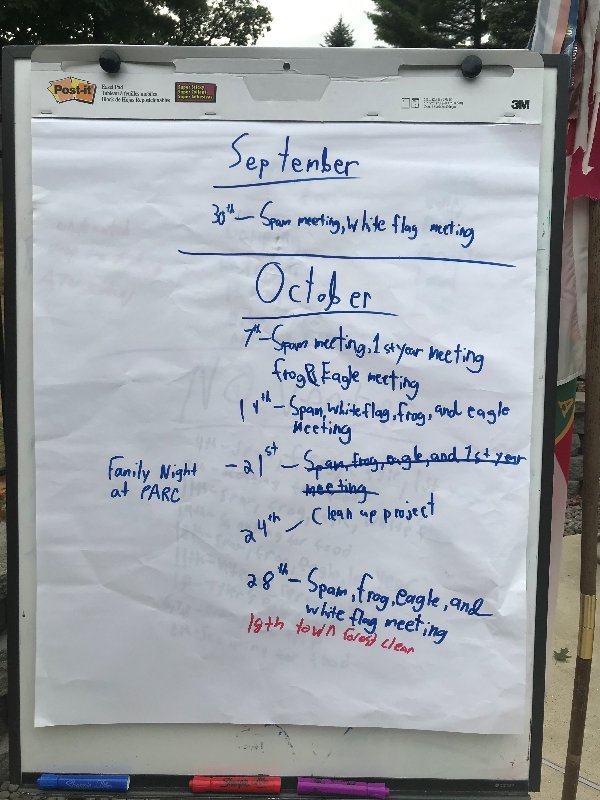 Post-it
Easel Pad
Tableau à feuilles mobiles
Block de Hojas Reposicionables
Super Sticky
3M
September
30th - Spam meeting, White flag meeting
October
7th - Spam meeting, 1st year meeting
frog & Eagle meeting
14th - Spam, white flag, frog, and eagle
Meeting
Family Night
at PARC
- 21st - Spam, frog, eagle, and 1st year
meeting
24th - Clean up project
28th - Spam, frog, eagle, and
white flag meeting
18th town forest clean
Sharpie